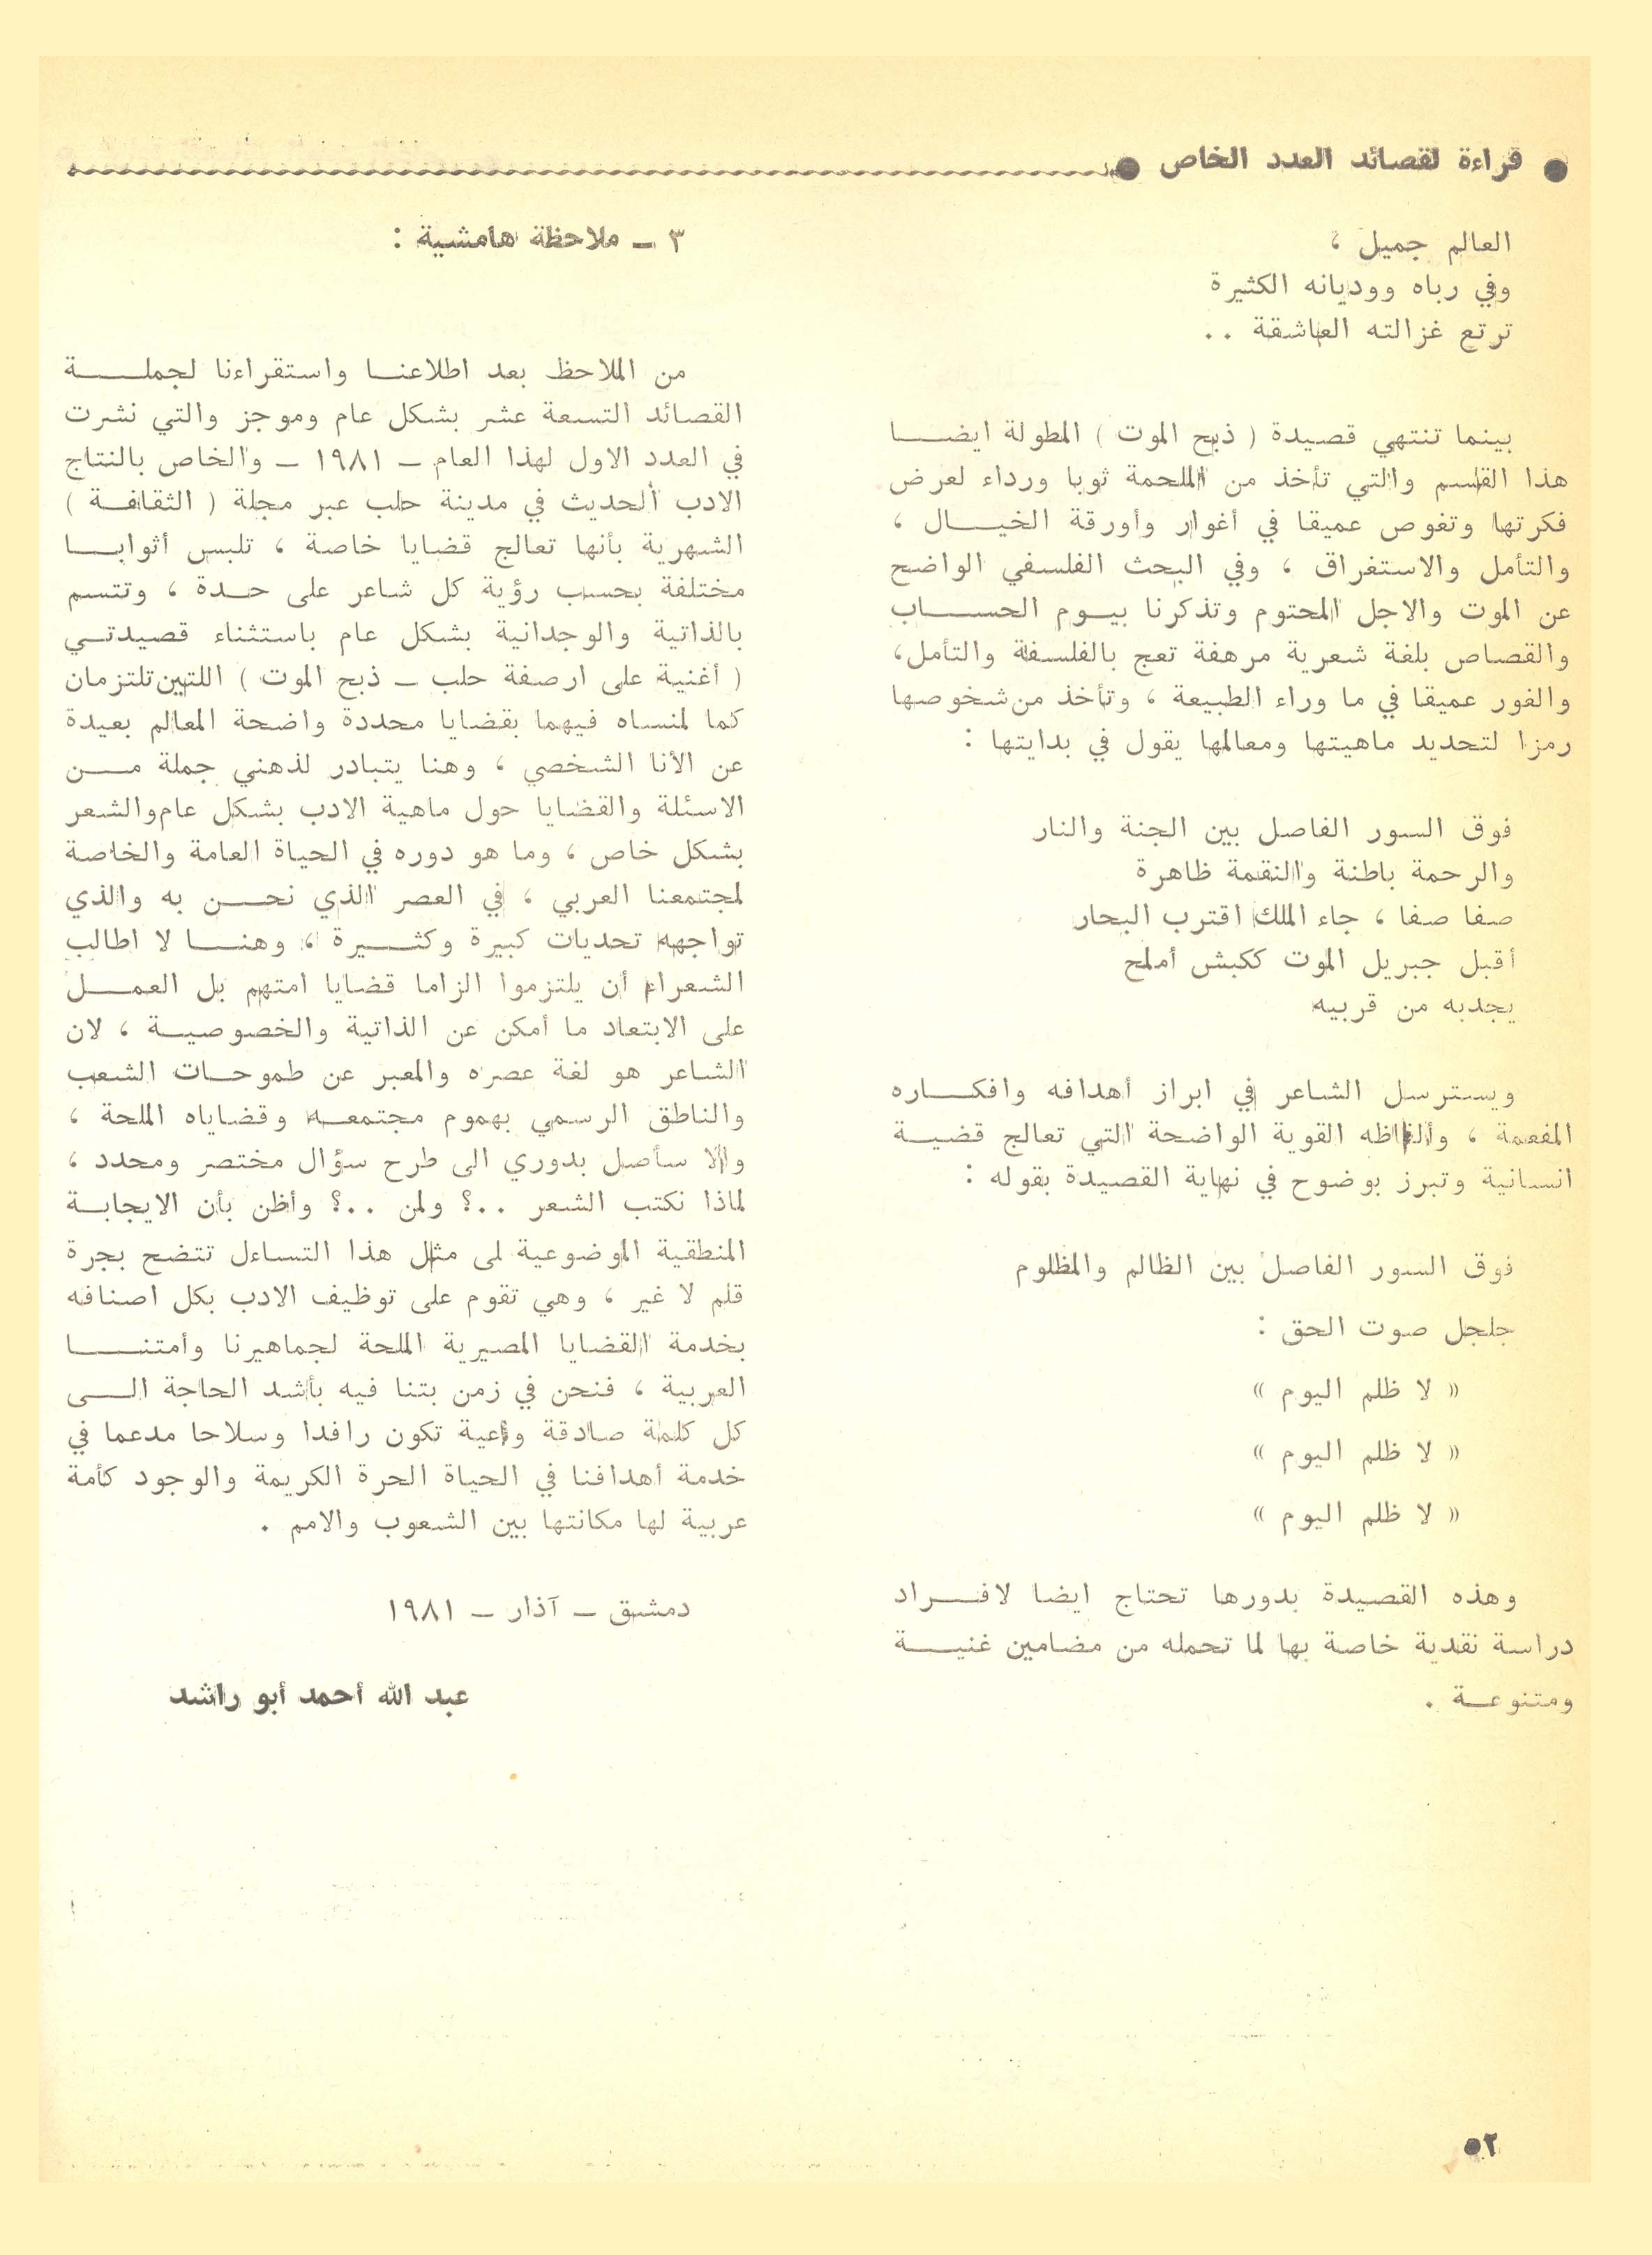 ● قراءة لقصائد العدد الخاص ●
العالم جميل ،
وفي رباه ووديانه الكثيرة
ترتع غزالته العاشقة ..
بينما تنتهي قصيدة ( ذبح الموت ) المطولة ايضا
هذا القسم والتي تأخذ من الملحمة ثوبا ورداء لعرض
فكرتها وتغوص عميقا في أغوار وأورقة الخيال ،
والتأمل والاستغراق ، وفي البحث الفلسفي الواضح
عن الموت والاجل المحتوم وتذكرنا بيوم الحساب
والقصاص بلغة شعرية مرهفة تعج بالفلسفة والتأمل،
والغور عميقا في ما وراء الطبيعة ، وتأخذ من شخوصها
رمزا لتحديد ماهيتها ومعالمها يقول في بدايتها :
فوق السور الفاصل بين الجنة والنار
والرحمة باطنة والنقمة ظاهرة
صفا صفا ، جاء الملك اقترب البحار
أقبل جبريل الموت ككبش أملح
يجدبه من قربيه
ويسترسل الشاعر في ابراز أهدافه وافكاره
المفعمة ، وألفاظه القوية الواضحة التي تعالج قضية
انسانية وتبرز بوضوح في نهاية القصيدة بقوله :
فوق السور الفاصل بين الظالم والمظلوم
جلجل صوت الحق :
« لا ظلم اليوم »
« لا ظلم اليوم »
« لا ظلم اليوم »
وهذه القصيدة بدورها تحتاج ايضا لافراد
دراسة نقدية خاصة بها لما تحمله من مضامين غنية
ومتنوعة .
٣ ـ ملاحظة هامشية :
من الملاحظ بعد اطلاعنا واستقراءنا لجملة
القصائد التسعة عشر بشكل عام وموجز والتي نشرت
في العدد الاول لهذا العام ـ ١٩٨١ ـ والخاص بالنتاج
الادب الحديث في مدينة حلب عبر مجلة ( الثقافة )
الشهرية بأنها تعالج قضايا خاصة ، تلبس أثوابا
مختلفة بحسب رؤية كل شاعر على حدة ، وتتسم
بالذاتية والوجدانية بشكل عام باستثناء قصيدتي
( أغنية على ارصفة حلب ـ ذبح الموت ) اللتين تلتزمان
كما لمنساه فيهما بقضايا محددة واضحة المعالم بعيدة
عن الأنا الشخصي ، وهنا يتبادر لذهني جملة من
الاسئلة والقضايا حول ماهية الادب بشكل عام والشعر
بشكل خاص ، وما هو دوره في الحياة العامة والخاصة
لمجتمعنا العربي ، في العصر الذي نحن به والذي
تواجهه تحديات كبيرة وكثيرة ، وهنا لا اطالب
الشعراء أن يلتزموا الزاما قضايا امتهم بل العمل
على الابتعاد ما أمكن عن الذاتية والخصوصية ، لان
الشاعر هو لغة عصره والمعبر عن طموحات الشعب
والناطق الرسمي بهموم مجتمعه وقضاياه الملحة ،
والا سأصل بدوري الى طرح سؤال مختصر ومحدد ،
لماذا نكتب الشعر ..؟ ولمن ..؟ وأظن بأن الايجابة
المنطقية الموضوعية لمى مثل هذا التساءل تتضح بجرة
قلم لا غير ، وهي تقوم على توظيف الادب بكل اصنافه
بخدمة القضايا المصيرية الملحة لجماهيرنا وأمتنا
العربية ، فنحن في زمن بتنا فيه بأشد الحاجة الى
كل كلمة صادقة واعية تكون رافدا وسلاحا مدعما في
خدمة أهدافنا في الحياة الحرة الكريمة والوجود كأمة
عربية لها مكانتها بين الشعوب والامم .
دمشق ـ آذار ـ ١٩٨١
عبد الله أحمد أبو راشد
٥٢